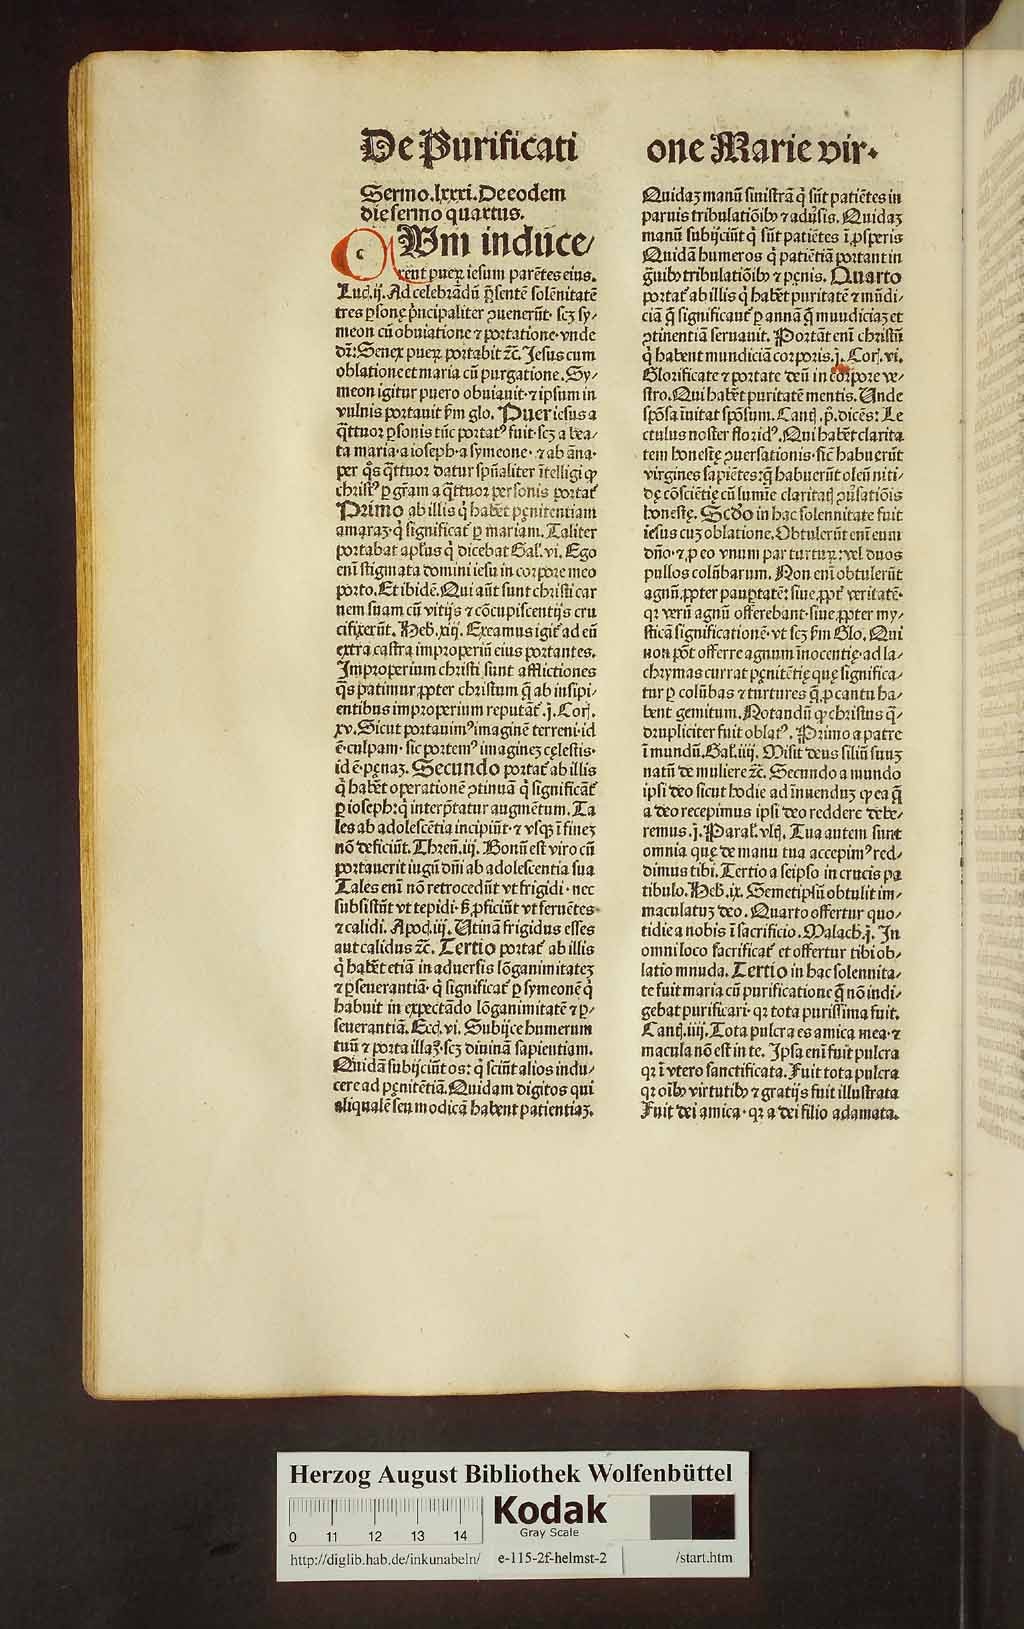 De Purificati
one Marie vir.
Sermo .lxxxi. De eodem
die sermo quartus.
CVm induce/
rent pueꝝ iesum parētes eius.
Luc̄. ij. Ad celebrādū p̄sentē solēnitatē
tres ꝑsonę p̄ncipaliter ꝯuenerūt. scꝫ sy/
meon cū obuiatione ⁊ portatione. vnde
dr̄: Senex pueꝝ portabit ⁊c̄. Jesus cum
oblatione et maria cū purgatione. Sy/
meon igitur puero obuiauit. ⁊ ipsum in
vulnis portauit s̄m glo. Puer iesus a
q̄ttuor ꝑsonis tūc portatꝰ fuit. scꝫ a bea/
ta maria. a ioseph. a symeone. ⁊ ab āna.
per q̄s q̄ttuor datur sp̄ualiter ītelligi ꝙ
christꝰ ꝑ gr̄am a q̄ttuor personis portat᷑
Primo ab illis q̄ habēt pęnitentiam
amaraꝫ. q̄ significat᷑ ꝑ mariam. Taliter
portabat apl̄us q̄ dicebat Gal̄. vi. Ego
enī stigmata domini iesu in corpore meo
porto. Et ibidē. Qui aūt sunt christi car
nem suam cū vitijs ⁊ cōcupiscentijs cru
cifixerūt. Heb̄. xiij. Exeamus igit᷑ ad eū
extra castra improperiū eius portantes.
Improperium christi sunt afflictiones
q̄s patimur ꝓpter christum q̄ ab insipi/
entibus improperium reputāt᷑. j. Cor̄.
xv. Sicut portauimꝰ imaginē terreni. id
ē. culpam. sic portemꝰ imagineꝫ cęlestis.
id ē. pęnaꝫ. Secundo portat᷑ ab illis
q̄ habēt operationē ꝯtinuā q̄ significāt᷑
ꝑ ioseph: q̄ interp̄tatur augmētum. Ta
les ab adolescētia incipiūt. ⁊ vsqꝫ ī fineꝫ
nō deficiūt. Thren̄. iij. Bonū est viro cū
portauerit iugū dn̄i ab adolescentia sua
Tales enī nō retrocedūt vt frigidi. nec
subsistūt vt tepidi. sꝫ ꝓficiūt vt feruētes
⁊ calidi. Apoc̄. iij. Utinā frigidus esses
aut calidus ⁊c̄. Tertio portat᷑ ab illis
q̄ habēt etiā in aduersis lōganimitateꝫ
⁊ ꝑseuerantiā. q̄ significat᷑ ꝑ symeonē q̄
habuit in expectādo lōganimitatē ⁊ ꝑ/
seuerantiā. Ecc̄. vi. Subijce humerum
tuū ⁊ porta illaꝫ. scꝫ diuinā sapientiam.
Quidā subijciūt os: q̄ sciūt alios indu/
cere ad pęnitētiā. Quidam digitos qui
aliqualē seu modicā habent patientiaꝫ.
Quidaꝫ manū sinistrā q̄ sūt patiētes in
paruis tribulatiōibꝰ ⁊ aduersis. Quidaꝫ
manū subijciūt q̄ sūt patiētes ī ꝓsperis
Quidā humeros q̄ patiētiā portant in
ḡuibꝰ tribulatiōibꝰ ⁊ pęnis. Quarto
portat᷑ ab illis q̄ habēt puritatē ⁊ mūdi/
ciā q̄ significant᷑ ꝑ annā q̄ muudiciaꝫ et
ꝯtinentiā seruauit. Portāt enī christū
q̄ habent mundiciā corporis. j. Cor̄. vi.
Glorificate ⁊ portate deū in corpore ve/
stro. Qui habēt puritatē mentis. Unde
spōsa īuitat spōsum. Can̄. p̄. dicēs: Le
ctulus noster floridꝰ. Qui habēt clarita
tem honestę ꝯuersationis. sīcē habuerūt
virgines sapiētes: q̄ habuerūt oleū niti/
dę cōsciētię cū lumīe claritatꝭ ꝯuersatiōis
honestę. Scd̄o in hac solennitate fuit
iesus cuꝫ oblatione. Obtulerūt enī eum
dn̄o. ⁊ ꝓ eo vnum par turtuꝝ: vel duos
pullos colūbarum. Non enī obtulerūt
agnū ꝓpter pauꝑtatē: siue ꝓpt᷑ veritatē.
qꝛ verū agnū offerebant. siue ꝓpter my/
sticā significationē. vt scꝫ s̄m Glo. Qui
non pōt offerre agnum īnocentię. ad la/
chrymas currat pęnitētię quę significa/
tur ꝑ colūbas ⁊ turtures q̄ ꝓ cantu ha/
bent gemitum. Notandū ꝙ christus q̄/
drupliciter fuit oblatꝰ. Primo a patre
ī mundū. Gal̄. iiij. Misit deus filiū suuꝫ
natū de muliere ⁊c̄. Secundo a mundo
ipsi deo sicut hodie ad īnuenduꝫ ꝙ ea q̄
a deo recepimus ipsi deo reddere debe/
remus. j. Paral̄. vlt̄. Tua autem sunt
omnia quę de manu tua accepimꝰ red/
dimus tibi. Tertio a seipso in crucis pa
tibulo. Heb̄. ix. Semetipsū obtulit im/
maculatuꝫ deo. Quarto offertur quo/
tidie a nobis ī sacrificio. Malach̄. j. In
omni loco sacrificat᷑ et offertur tibi ob/
latio mnuda. Tertio in hac solennita/
te fuit maria cū purificatione q̄ nō indi/
gebat purificari. qꝛ tota purissima fuit.
Can̄. iiij. Tota pulcra es amica mea. ⁊
macula nō est in te. Ipsa enī fuit pulcra
qꝛ ī vtero sanctificata. Fuit tota pulcra
qꝛ oībꝰ virtutibꝰ ⁊ gratijs fuit illustrata
Fuit dei amica. qꝛ a dei filio adamata.
Herzog August Bibliothek Wolfenbüttel
Kodak
Gray Scale
0 11 12 13 14
http://diglib.hab.de/inkunabeln/ e-115-2f-helmst-2 /start.htm